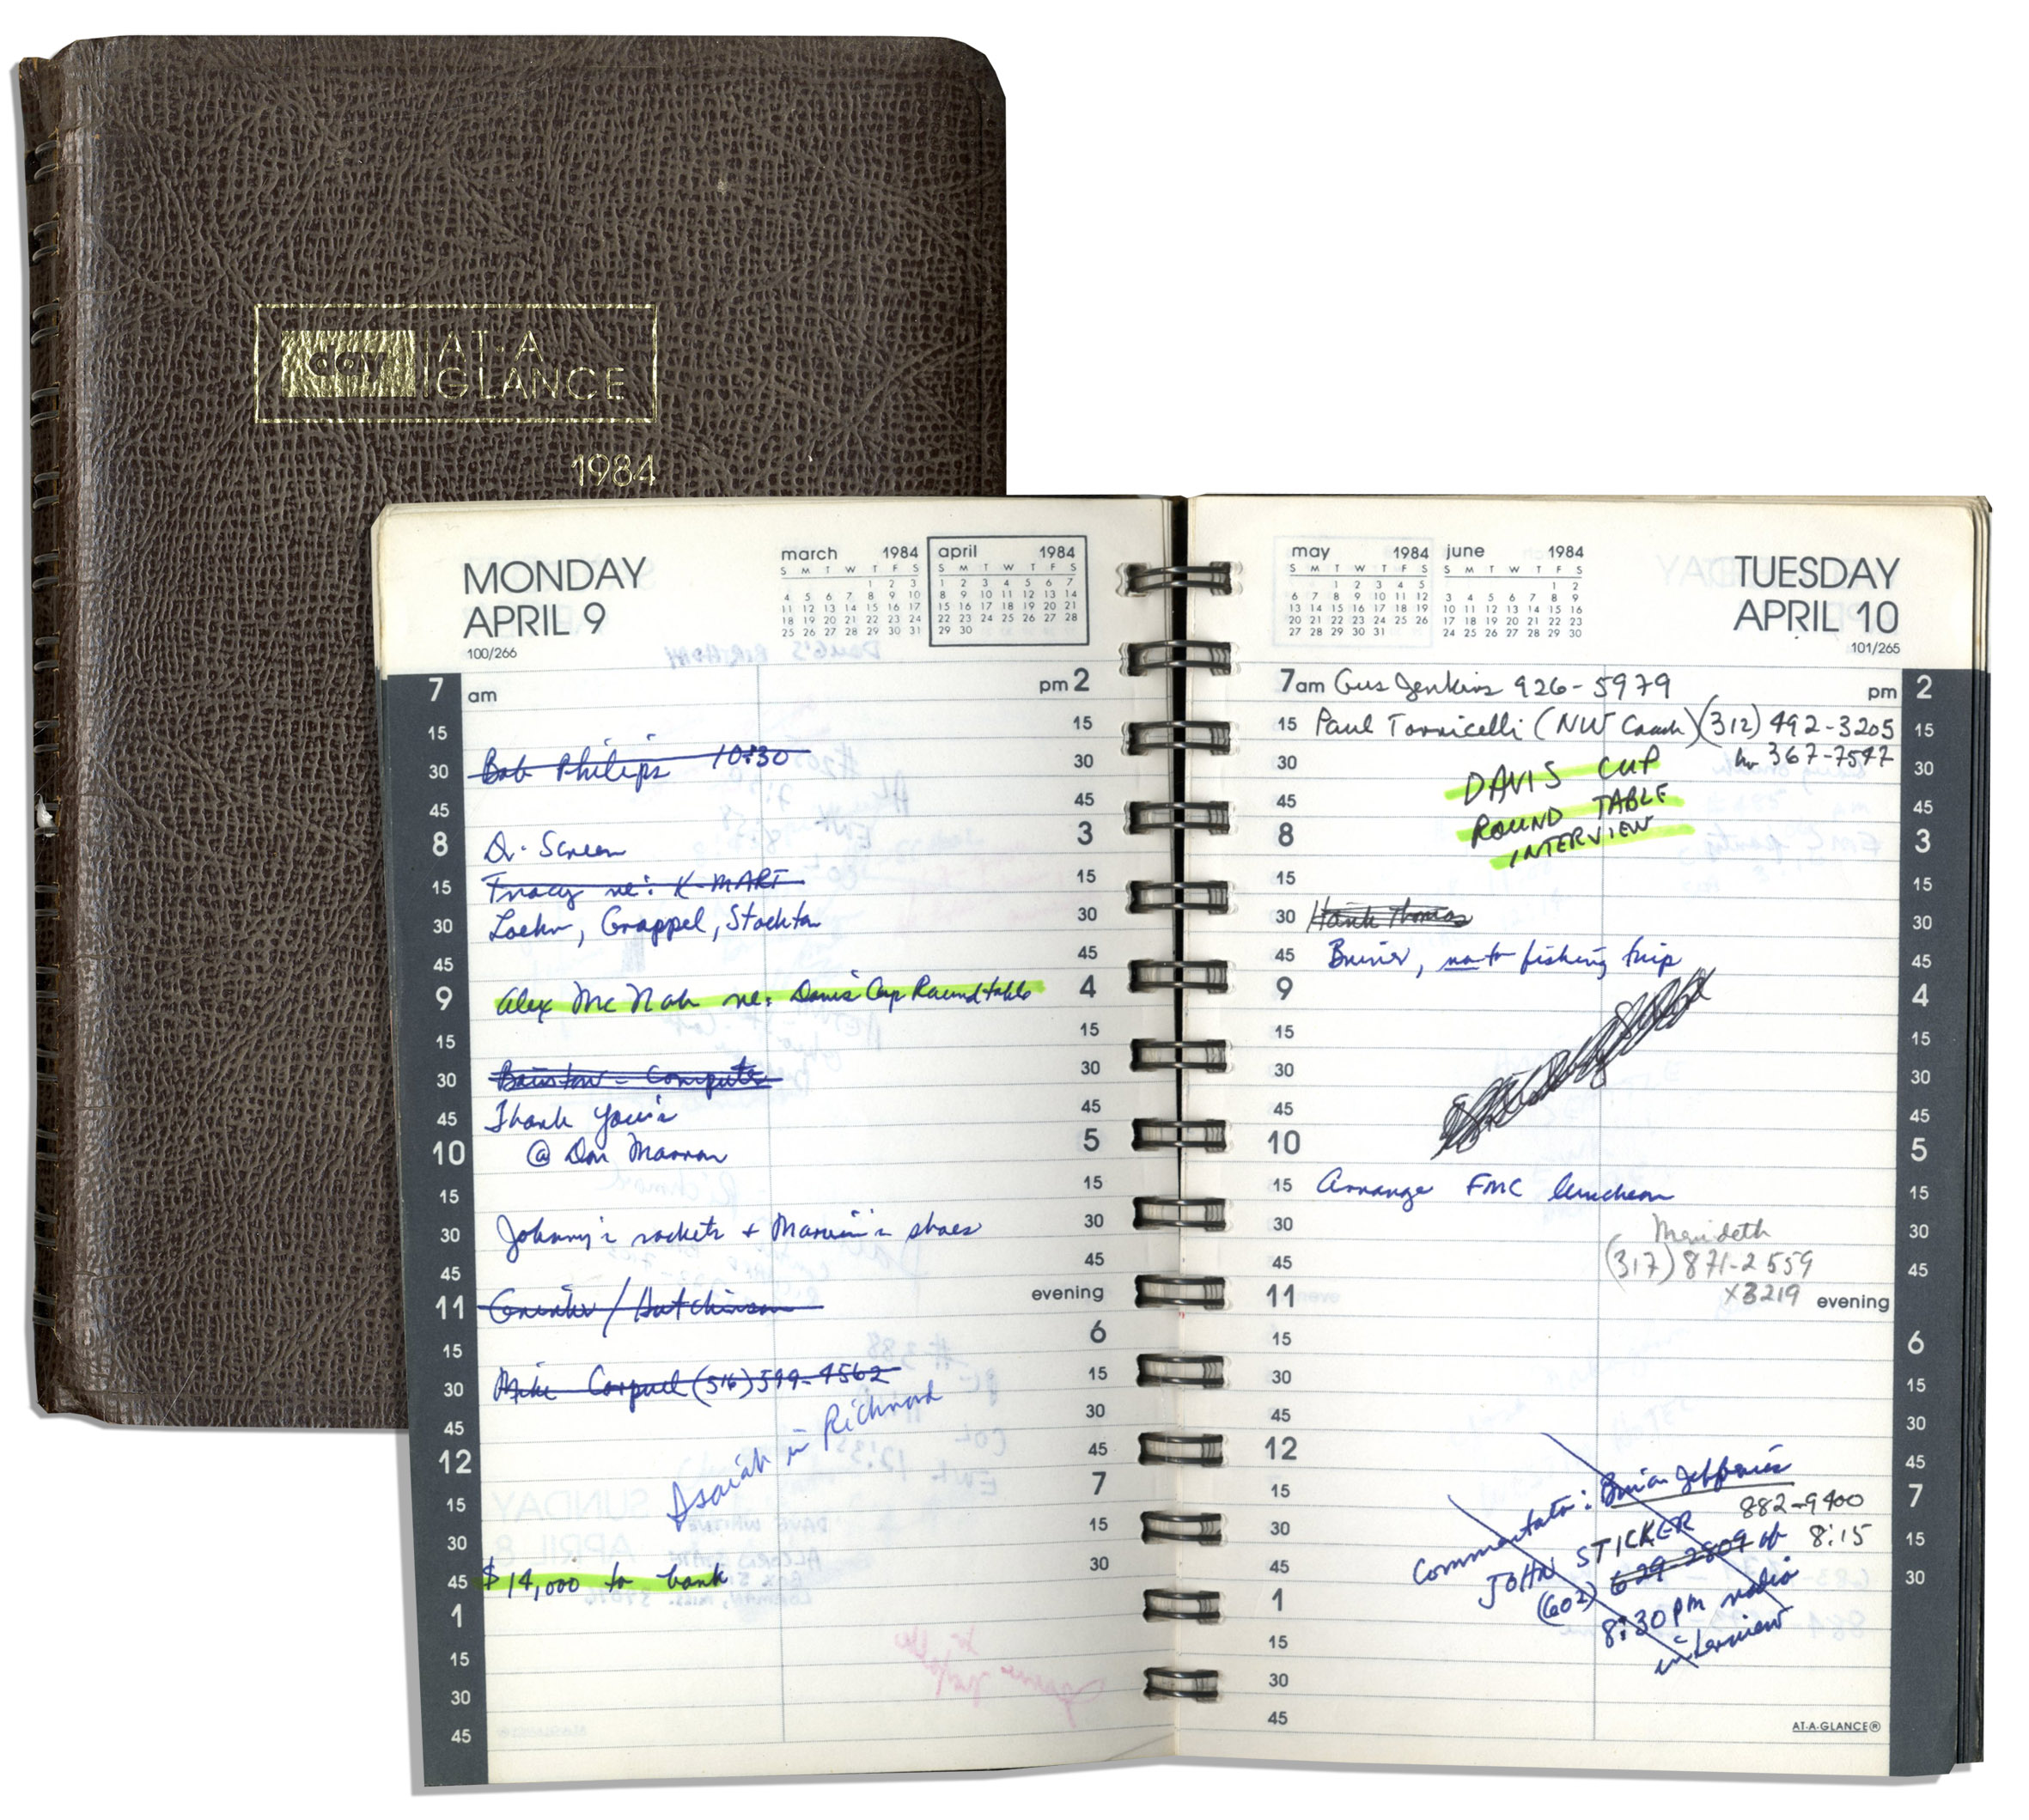 day
AT-A
GLANCE
1984
MONDAY
APRIL 9
100/266
march 1984
S M T W T F S
1 2 3
4 5 6 7 8 9 10
11 12 13 14 15 16 17
18 19 20 21 22 23 24
25 26 27 28 29 30 31
april 1984
S M T W T F S
1 2 3 4 5 6 7
8 9 10 11 12 13 14
15 16 17 18 19 20 21
22 23 24 25 26 27 28
29 30
7 am pm 2
15 15
Bob Philips 10:30
30 30
45 45
8 Dr. Screen 3
15 Tracy re: K-MART 15
30 Loehr, Grappel, Stockton 30
45 45
9 Alex McNab re: Davis Cup Roundtable 4
15 15
30 Computer 30
45 Thank you's 45
10 @ Don Marron 5
15 15
30 Johnny's rackets + Marvin's shoes 30
45 45
11 / Hutchinson evening
15 6
30 Mike (516) 599-4562 15
45 Isaiah in Richmond 30
12 45
15 7
30 15
45 $14,000 to bank 30
1
15
30
45
may 1984
S M T W T F S
1 2 3 4 5
6 7 8 9 10 11 12
13 14 15 16 17 18 19
20 21 22 23 24 25 26
27 28 29 30 31
june 1984
S M T W T F S
1 2
3 4 5 6 7 8 9
10 11 12 13 14 15 16
17 18 19 20 21 22 23
24 25 26 27 28 29 30
TUESDAY
APRIL 10
101/265
7am Gus Jenkins 926-5979 pm 2
15 Paul Torricelli (NW Coach) (312) 492-3205 15
30 367-7547 30
DAVIS CUP
45 ROUND TABLE 45
8 INTERVIEW 3
15 15
30 Hank Thomas 30
45 fishing trip 45
9 4
15 15
30 30
45 45
10 5
15 Arrange FMC luncheon 15
30 Merideth 30
45 (317) 871-2559 45
11 X3219 evening
15 6
30 15
45 30
12 45
Commentator: Brian Jeffries
15 882-9400 7
30 JOHN STICKER 8:15 15
45 (602) 629-2809 at 30
1 8:30PM radio
15 interview
30
45
AT-A-GLANCE®